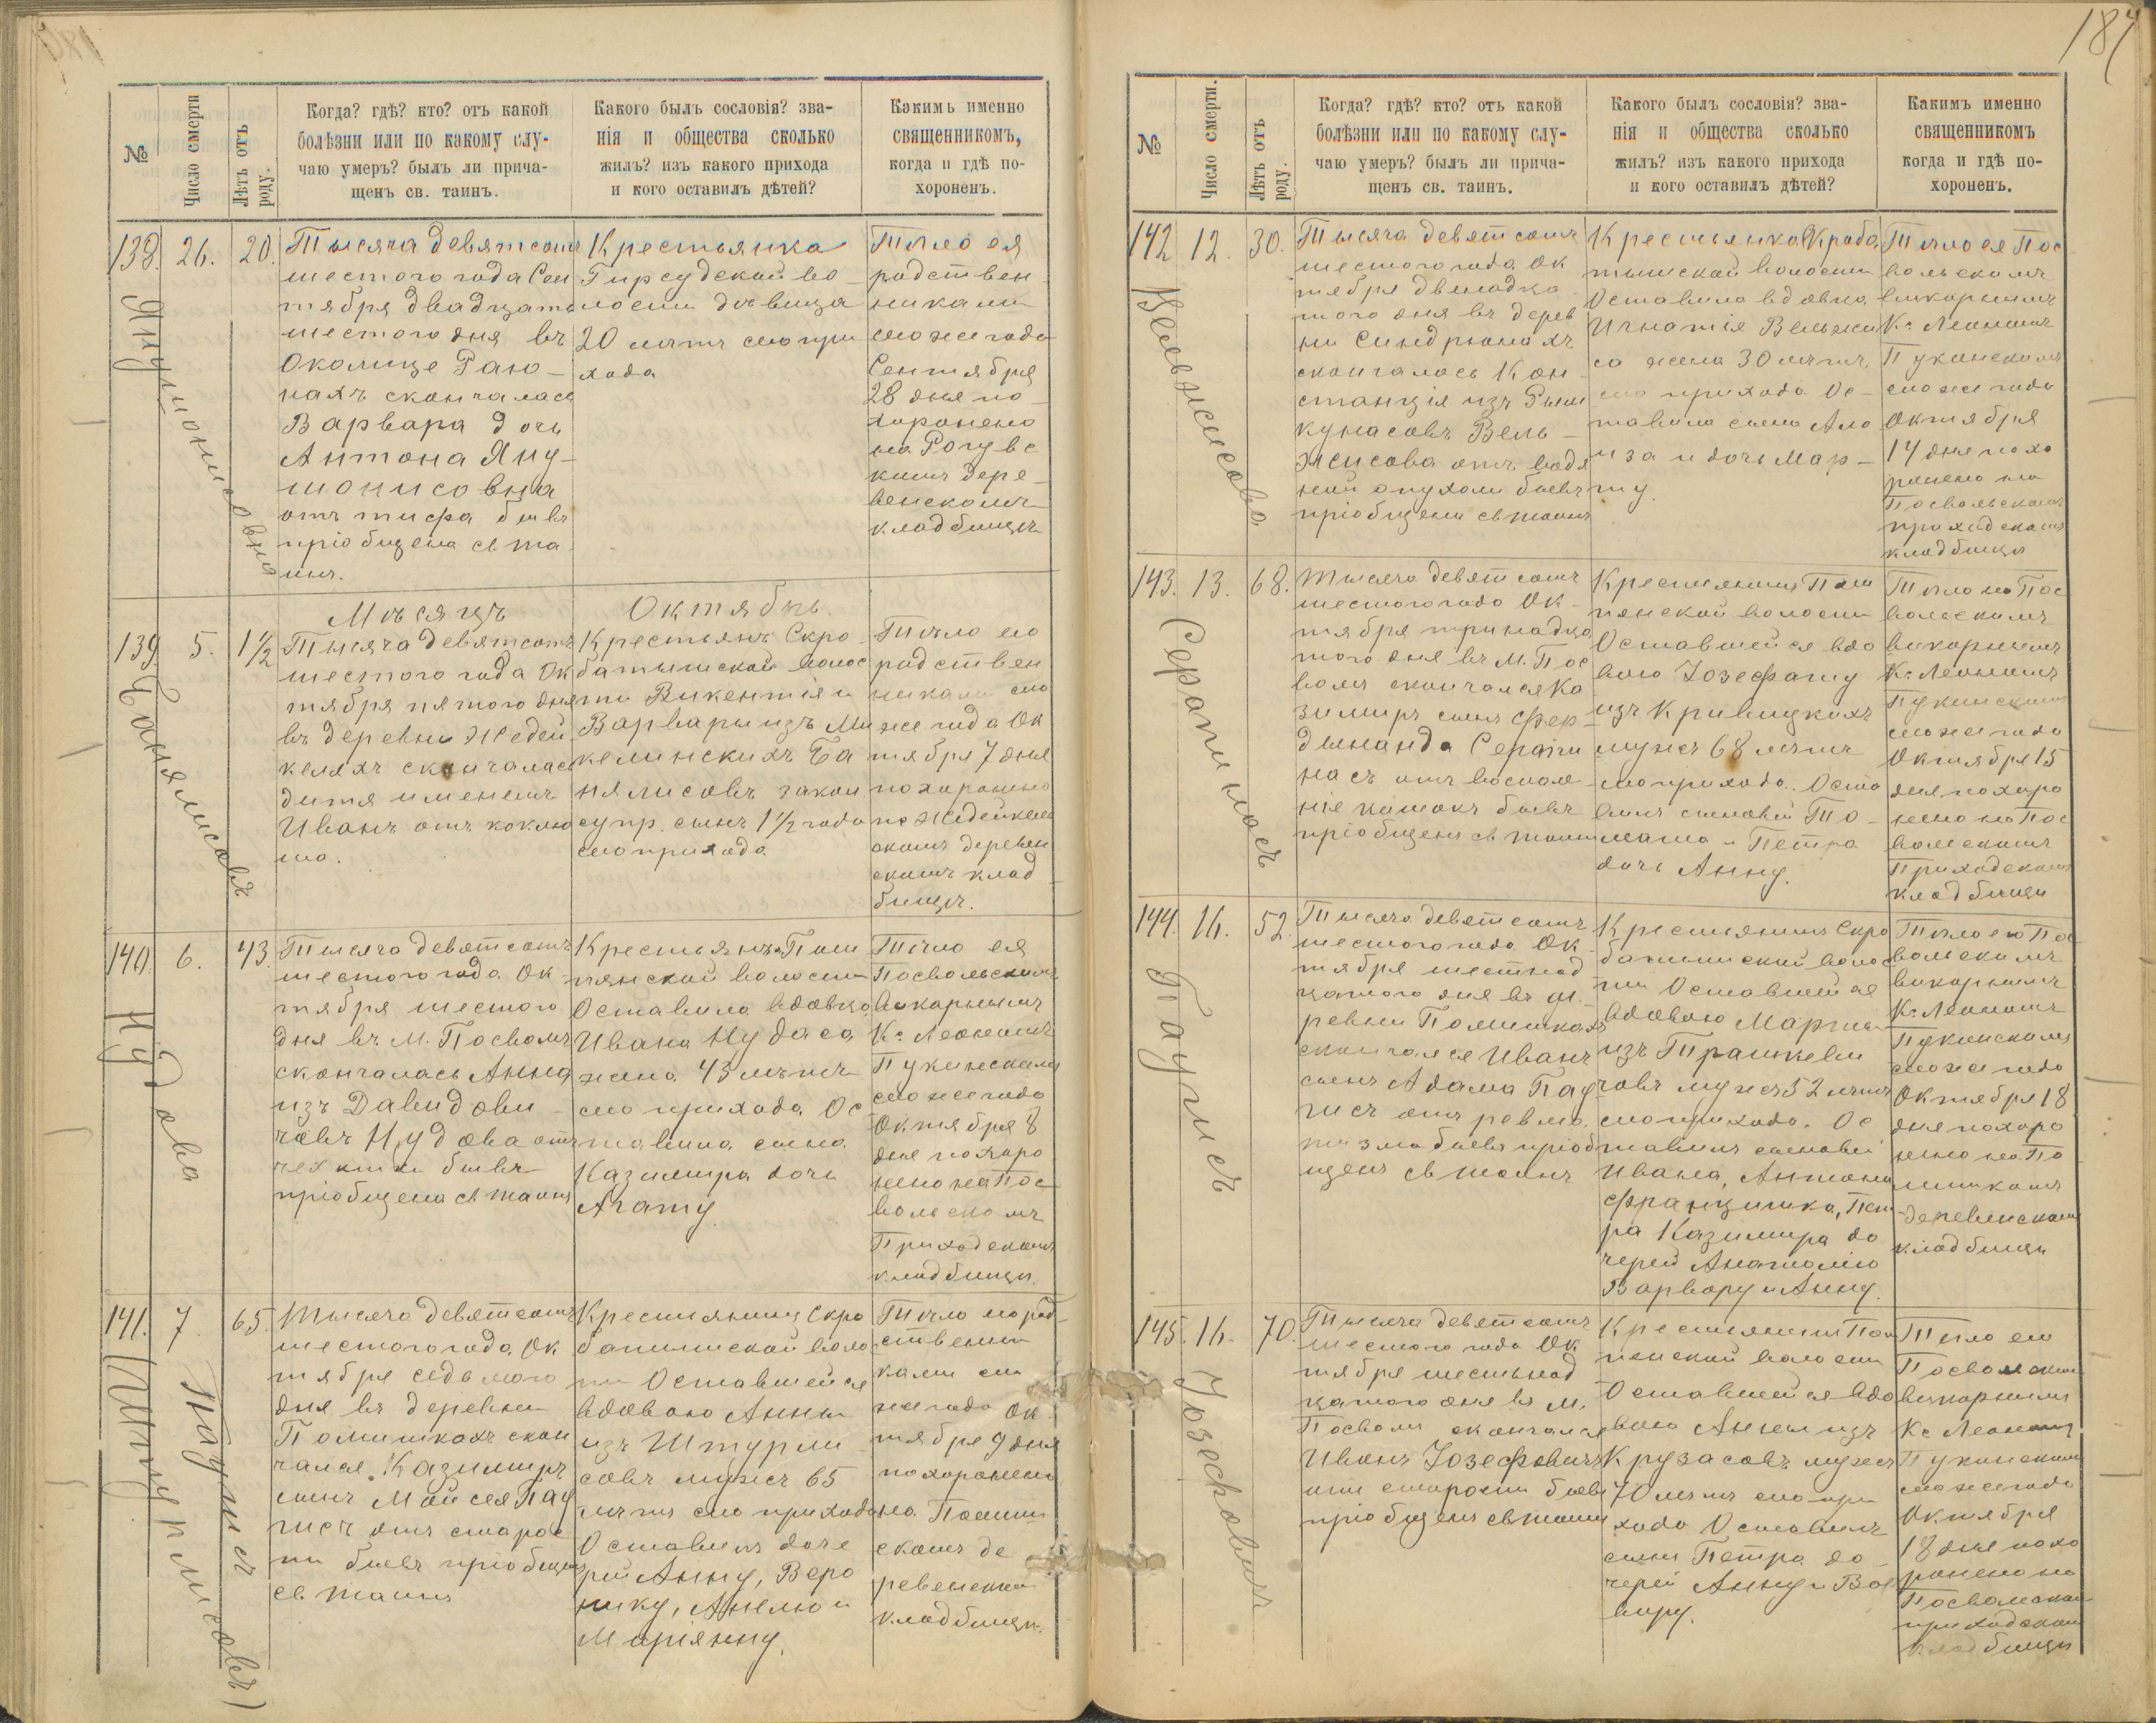 187
№
Число смерти
Лѣтъ отъ роду.
Когда? гдѣ? кто? отъ какой
болѣзни или по какому слу-
чаю умеръ? былъ ли прича-
щенъ св. таинъ.
Какого былъ сословія? зва-
нія и общества сколько
жилъ? изъ какого прихода
и кого оставилъ дѣтей?
Какимъ именно
священникомъ,
когда и гдѣ по-
хороненъ.
138. 26. 20.
Янушонисовна
Тысяча девятсотъ
шестого года Сен
тября двадцать
шестого дня въ
Околице Раю-
нахъ скончалась
Варвара дочь
Антона Яну-
шонисовна
отъ тифа бывъ
пріобщена св та
инъ.
Крестьянка
Гирсудской во-
лости дѣвица
20 лѣтъ сего при
хода
Тѣло ея
родствен
никами
сего же года
Сентября
28 дня по-
хоронено
на Рогувс
комъ дере-
венскомъ
кладбищѣ
Мѣсяцъ Октябрь.
139 5. 1½
Банялисовъ
Тысяча девятсотъ
шестого года Ок
тября пятого дня
въ деревни Жедей
келяхъ скончалась
дитя именемъ
Иванъ отъ коклю
ша.
Крестьянъ Скро-
батышской волос
ти Викентія и
Варвары изъ Ми
келинскихъ Ба
нялисовъ закон
супр. сынъ 1½ года
сего прихода
Тѣло его
родствен
никами сего
же года Ок
тября 7 дня
похоронено
на Жедейкель
скомъ деревен
скомъ клад
бищѣ.
140. 6. 43
Нудова
Тысяча девятсотъ
шестого года Ок-
тября шестого
дня въ М. Посволѣ
скончалась Анна
изъ Давидови-
човъ Нудова отъ
чехотки бывъ
пріобщена св таинъ
Крестьянка Пом
пянской волости
Оставила вдовца
Ивана Нудаса
жена 43 лѣтъ
сего прихода Ос
тавила сына
Казимира дочь
Агату
Тѣло ея
Посвольскимъ
викарнымъ
Кс Леономъ
Пукинскимъ
сего же года
Октября 8
дня похоро
нено на Пос
вольскомъ
Приходскомъ
кладбищѣ.
141. 7. 65.
Паугисъ
(Штурмисовъ)
Тысяча девятсотъ
шестого года Ок
тября седьмого
дня въ деревни
Помишкахъ скон
чался Казимиръ
сынъ Мойсея Пау
гисъ отъ старос
ти бывъ пріобщенъ
св таинъ
Крестьянинъ Скро
батышской воло
ти Оставшейся
вдовою Анны
изъ Штурми
совъ мужъ 65
лѣтъ сего прихода
Оставилъ доче
рей Анну, Веро
нику, Анелю и
Маріянну.
Тѣло его род
ственни
ками сего
же года Ок
тября 9 дня
похоронено
на Помиш
скомъ де
ревенскомъ
кладбищѣ.
№
Число смерти.
Лѣтъ отъ роду.
Когда? гдѣ? кто? отъ какой
болѣзни или по какому слу-
чаю умеръ? былъ ли прича-
щенъ св. таинъ.
Какого былъ сословія? зва-
нія и общества сколько
жилъ? изъ какого прихода
и кого оставилъ дѣтей?
Какимъ именно
священникомъ
когда и гдѣ по-
хороненъ.
142 12. 30.
Вельжисова
Тысяча девятсотъ
шестого года Ок
тября двенадца
того дня въ дерев
ни Синдріонахъ
скончалась Кон-
станція изъ Рым
кунасовъ Вель-
жисова отъ водя
ной опухоли бывъ
пріобщена св таинъ
Крестьянка Скроба
тышской волости
Оставила вдовца
Игнатія Вельжи
са жена 30 лѣтъ
сего прихода. Ос-
тавила сына Ало
иза и дочь Мар-
ту.
Тѣло ея Пос
вольскимъ
викарнымъ
Кс Леономъ
Пукинскимъ
сего же года
Октября
14 дня похо
ронено на
Посвольскомъ
приходскомъ
кладбищѣ
143. 13. 68.
Серапинасъ
Тысяча девятсотъ
шестого года Ок-
тября тринадца
того дня въ М. Пос
волѣ скончался Ка
зимиръ сынъ Фер-
динанда Серапи
насъ отъ воспале
нія кишокъ бывъ
пріобщенъ св таинъ
Крестьянинъ Пом
пянской волости
Оставшейся вдо
вою Іозефату
изъ Кривицкихъ
мужъ 68 лѣтъ
сего прихода. Оста
вилъ сыновей То-
маша и Петра
дочь Анну.
Тѣло его Пос
вольскимъ
викарнымъ
Кс Леономъ
Пукинскимъ
сего же года
Октября 15
дня похоро
нено на Пос
вольскомъ
Приходскомъ
кладбищѣ
144. 16. 52.
Паугисъ
Тысяча девятсотъ
шестого года Ок-
тября шестнад
цатого дня въ де-
ревни Помишкахъ
скончался Иванъ
сынъ Адама Пау
гисъ отъ ревма
тизма бывъ пріоб
щенъ св таинъ
Крестьянинъ Скро
батышской волос
ти Оставшейся
вдовою Марты
изъ Трашкеви
човъ мужъ 52 лѣтъ
сего прихода. Ос
тавилъ сыновей
Ивана, Антона
Францишка, Пет
ра Казимира до
черей Анатолію
Варвару и Анну.
Тѣло его Пос
вольскимъ
викарнымъ
Кс Леономъ
Пукинскимъ
сего же года
Октября 18
дня похоро
нено на По
мишкомъ
деревенскомъ
кладбищѣ
145. 16. 70.
Іозефовичъ
Тысяча девятсотъ
шестого года Ок
тября шестьнад
цатого дня въ М.
Посволѣ скончался
Иванъ Іозефовичъ
отъ старости бывъ
пріобщенъ св таинъ
Крестьянинъ Пом
пянской волости
Оставшейся вдо
вою Анны изъ
Крузасовъ мужъ
70 лѣтъ сего при
хода Оставилъ
сына Петра до-
черей Анну и Вал
виру.
Тѣло его
Посвольскимъ
викарнымъ
Кс Леономъ
Пукинскимъ
сего же года
Октября
18 дня похо
ронено на
Посвольскомъ
приходскомъ
кладбищѣ